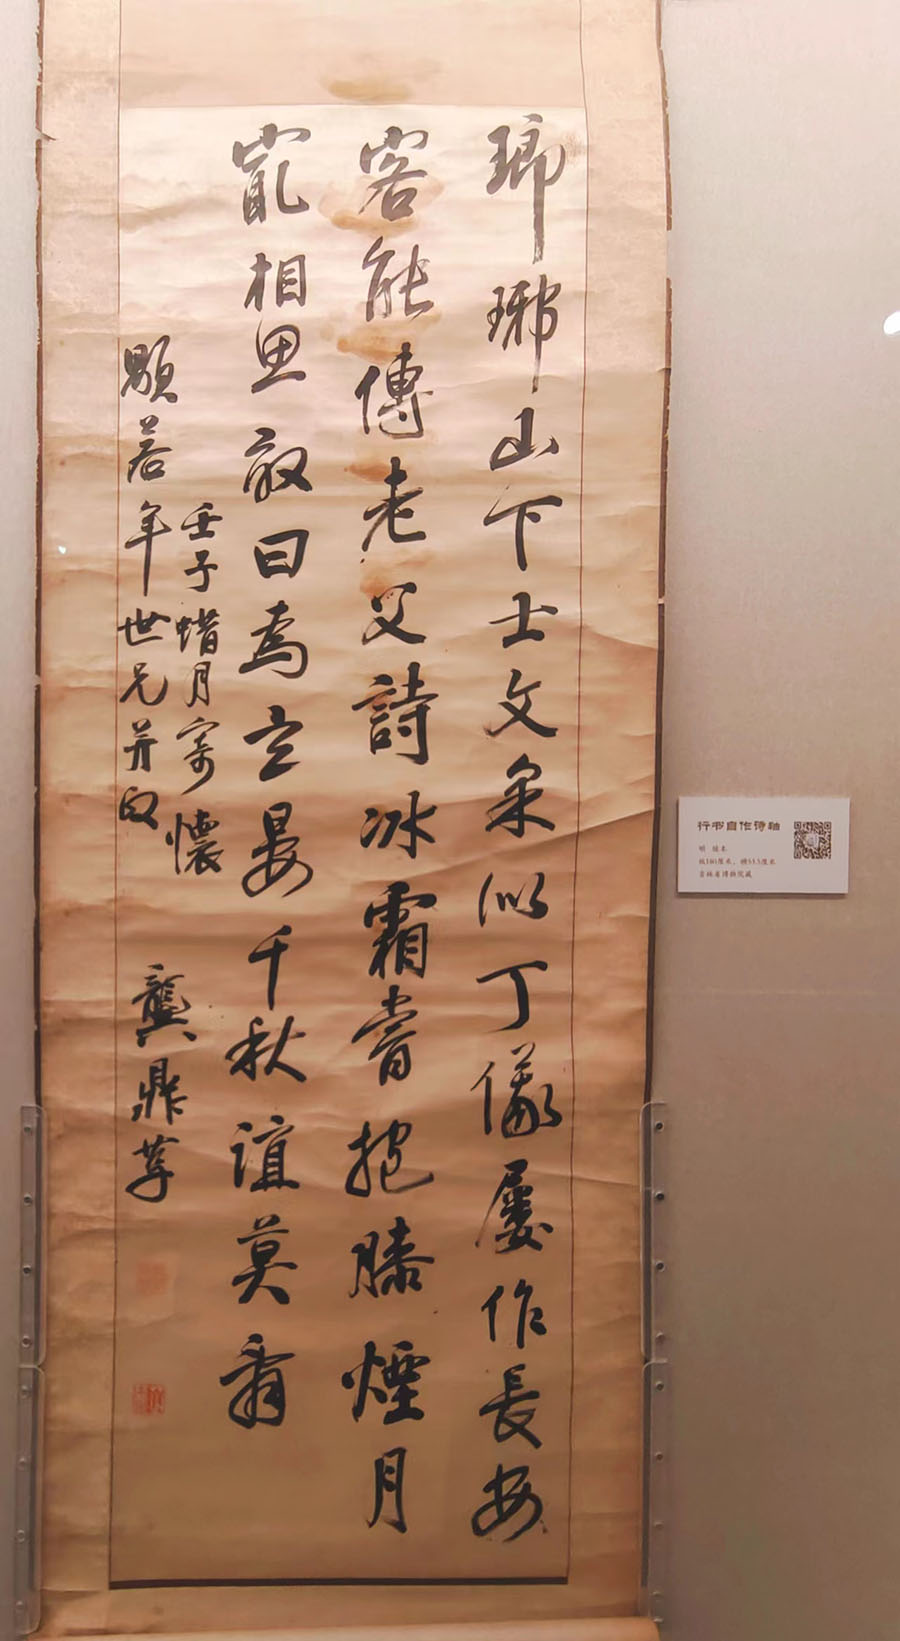 瑯琊山下士文采似丁儀屢作長安
客能傳老父詩冰霜嘗抱膝煙月
最相思敢曰為立晏千秋誼莫
壬子蜡月寄懷
顒若年世兄并政
龔鼎孳
行书自作诗轴
明 绫本
纵160厘米，横53.5厘米
吉林省博物院藏